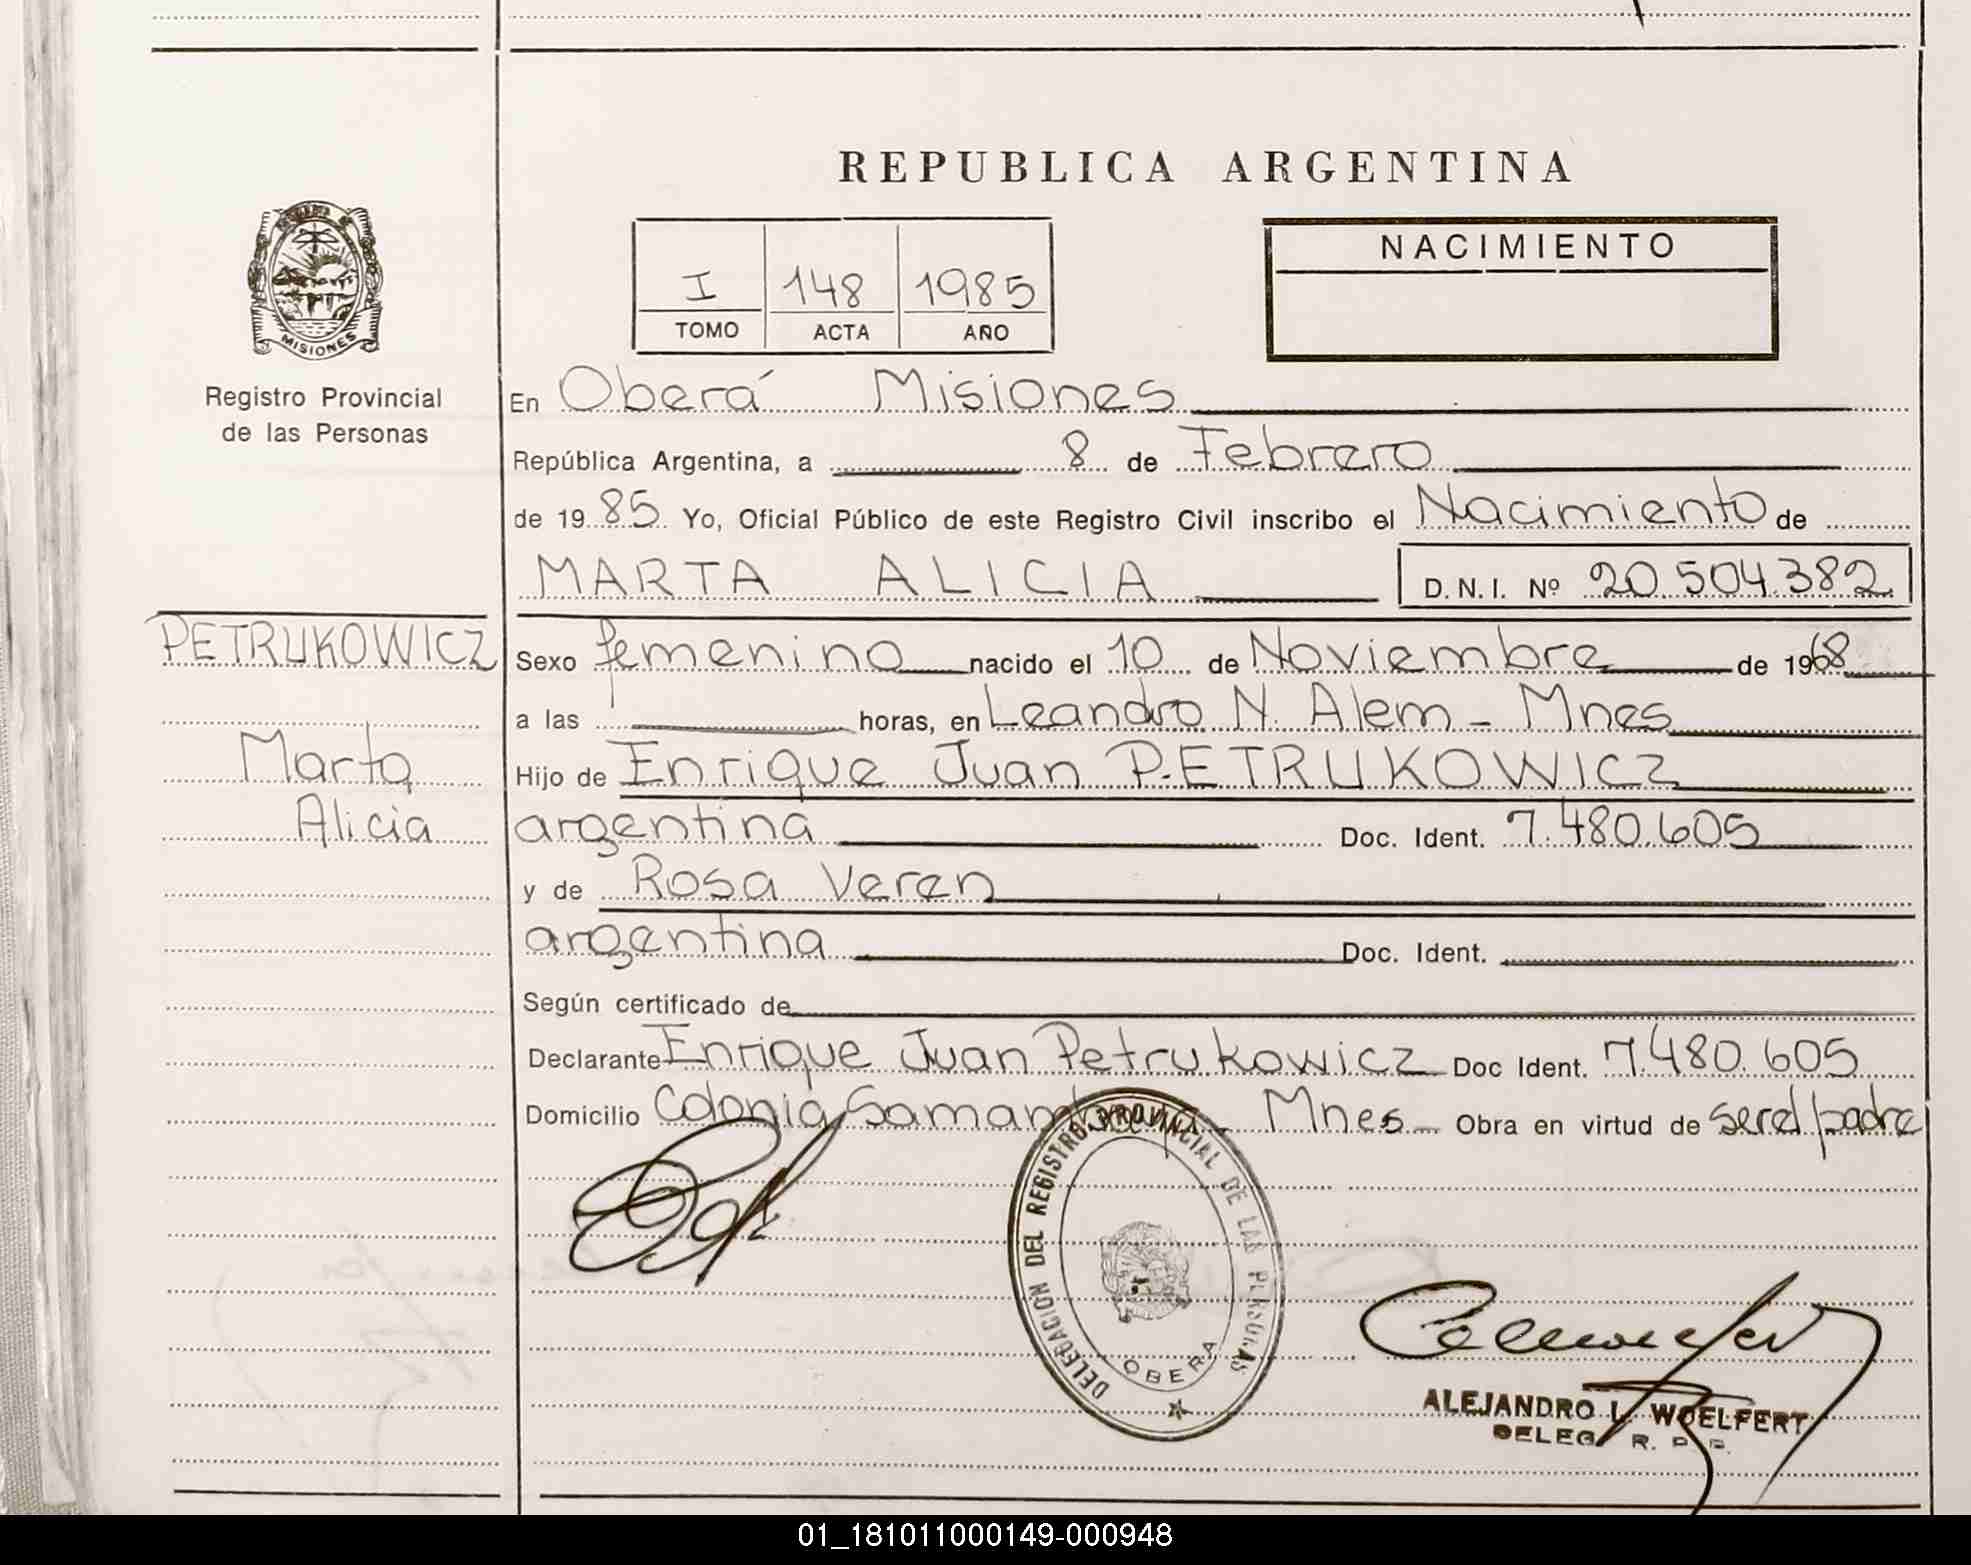 REPUBLICA ARGENTINA
I 148 1985
TOMO ACTA AÑO
NACIMIENTO
MISIONES
Registro Provincial
de las Personas
En Oberá Misiones
República Argentina, a 8 de Febrero
de 1985 Yo, Oficial Público de este Registro Civil inscribo el Nacimiento de
MARTA ALICIA D.N.I. Nº 20.504.382
PETRUKOWICZ
Marta
Alicia
Sexo femenino nacido el 10 de Noviembre de 1968
a las horas, en Leandro N. Alem - Mnes
Hijo de Enrique Juan PETRUKOWICZ
argentina Doc. Ident. 7.480.605
y de Rosa Veren
argentina Doc. Ident.
Según certificado de
Declarante Enrique Juan Petrukowicz Doc Ident. 7.480.605
Domicilio Colonia - Mnes - Obra en virtud de ser el padre
DELEGACION DEL REGISTRO PROVINCIAL DE LAS PERSONAS
OBERA
ALEJANDRO L. WOELFERT
DELEG. R. P. P.
01_181011000149-000948